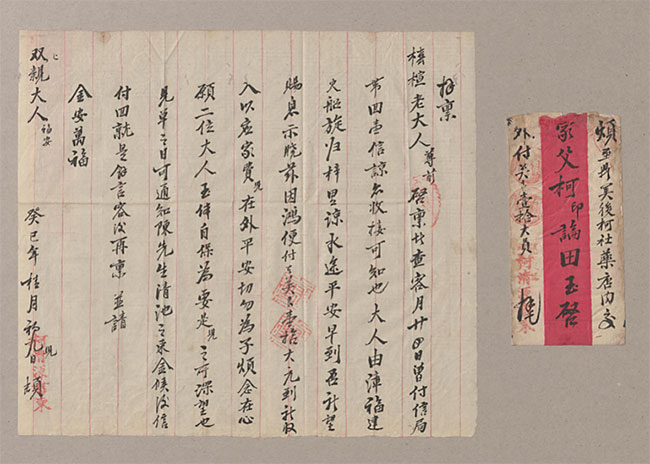 拜稟
椿萱老大人尊前 啓稟者查客月廿四日曾付信局
第四壹信諒必收接可知也大人由漳福建
火船旋归梓里諒水途平安早到吾祈望
賜息示曉茲因鴻便付之英艮壹拾大元到祈收
入以应家費兒在外平安切勿為子煩念在心
願二位大人玉体自保為要是兒之所深望也
見单之日可通知陳先生清池之來金候後信
付回就是餘言容後再稟 並請
金安萬福
双親大人 福安
癸巳年桂月初九日 兒 頓
煩至美後柯社藥店内交
家父柯印田玉啓
外付英艮壹拾大員